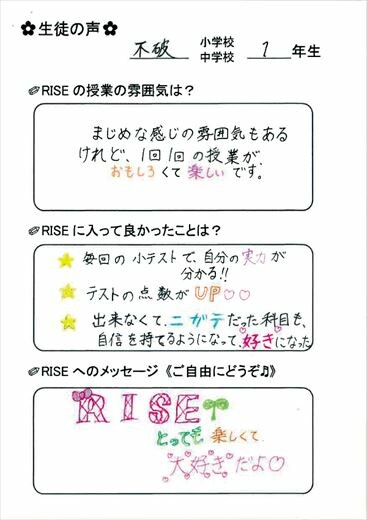 ✿生徒の声✿
不破 小学校
中学校 1 年生
RISEの授業の雰囲気は？
まじめな感じの雰囲気もある
けれど、1回1回の授業が、
おもしろくて楽しいです。
RISEに入って良かったことは？
毎回の小テストで、自分の実力が
分かる!!
テストの点数がUP♡♡
出来なくて、ニガテだった科目も、
自信を持てるようになって、好きになった
RISEへのメッセージ《ご自由にどうぞ♫》
RISE
とっても楽しくて、
大好きだよ♡